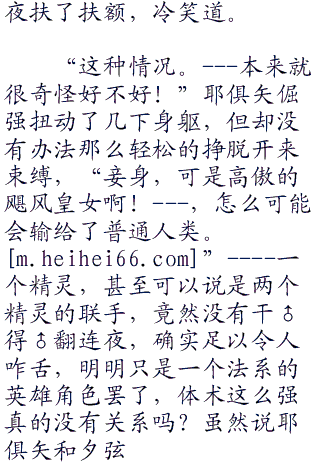 夜扶了扶额，冷笑道。
“这种情况。---本来就
很奇怪好不好！”耶俱矢倔
强扭动了几下身躯，但却没
有办法那么轻松的挣脱开来
束缚，“妾身，可是高傲的
飓风皇女啊！---，怎么可能
会输给了普通人类。
[m.heihei66.com]”----一
个精灵，甚至可以说是两个
精灵的联手，竟然没有干♂
得♂翻连夜，确实足以令人
咋舌，明明只是一个法系的
英雄角色罢了，体术这么强
真的没有关系吗？虽然说耶
俱矢和夕弦